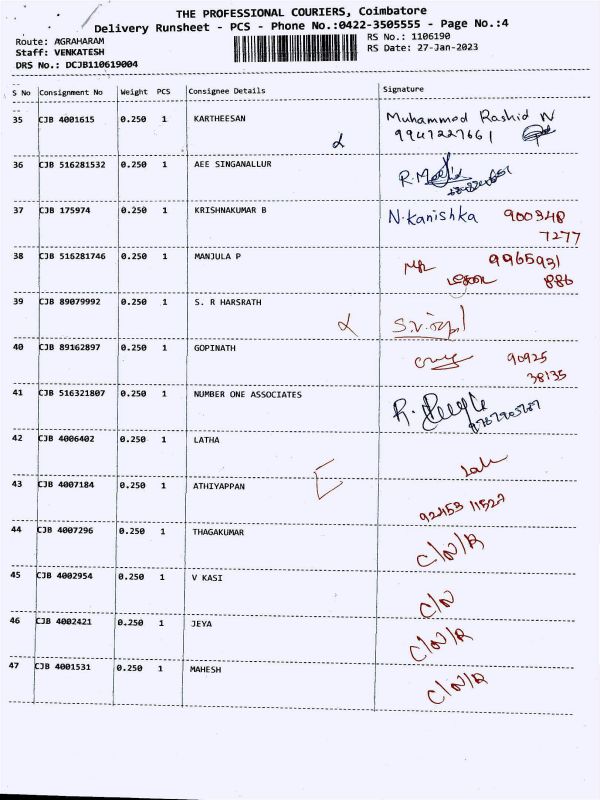 THE PROFESSIONAL COURIERS, Coimbatore
Delivery Runsheet - PCS - Phone No.:0422-3505555 - Page No.:4
Route: AGRAHARAM
RS No.: 1106190
Staff: VENKATESH
RS Date: 27-Jan-2023
DRS No.: DCJB110619004
S No Consignment No Weight PCS Consignee Details Signature
35 CJB 4001615 0.250 1 KARTHEESAN Muhammed Rashid N
9947227661
36 CJB 516281532 0.250 1 AEE SINGANALLUR
37 CJB 175974 0.250 1 KRISHNAKUMAR B N.Kanishka 900348
7277
38 CJB 516281746 0.250 1 MANJULA P 9965931
886
39 CJB 89079992 0.250 1 S. R HARSRATH
40 CJB 89162897 0.250 1 GOPINATH 90925
38135
41 CJB 516321807 0.250 1 NUMBER ONE ASSOCIATES
42 CJB 4006402 0.250 1 LATHA
43 CJB 4007184 0.250 1 ATHIYAPPAN 92453 11527
44 CJB 4007296 0.250 1 THAGAKUMAR C/N/R
45 CJB 4002954 0.250 1 V KASI C/N
46 CJB 4002421 0.250 1 JEYA C/N/R
47 CJB 4001531 0.250 1 MAHESH C/N/R